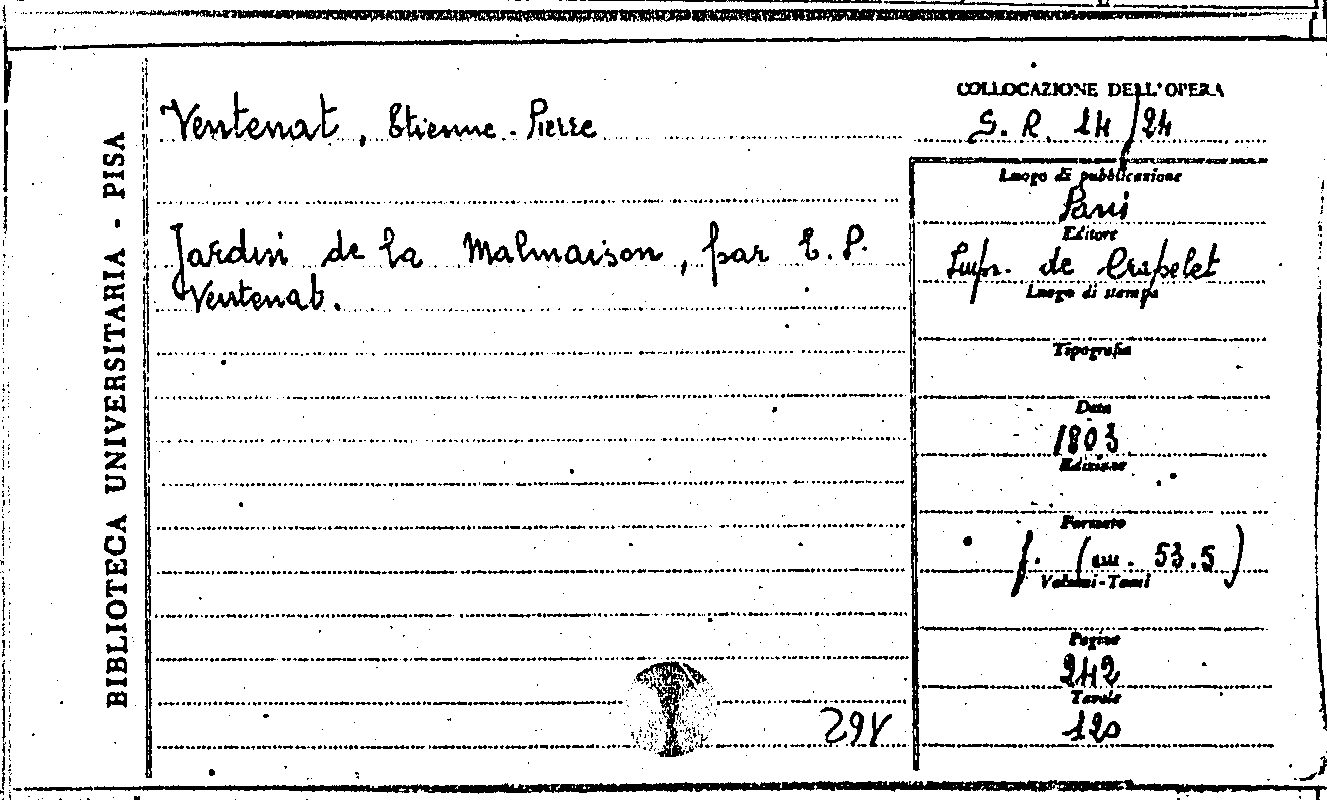 BIBLIOTECA UNIVERSITARIA - PISA
Ventenat, Etienne-Pierre
Jardin de la Malmaison, par E. P.
Ventenat.
COLLOCAZIONE DELL'OPERA
S. R. 14/24
Luogo di pubblicazione
Paris
Editore
Impr. de Crapelet
Luogo di stampa
Tipografia
Data
1803
Edizione
Formato
f. (cm. 53.5)
Volumi-Tomi
Pagine
242
Tavole
120